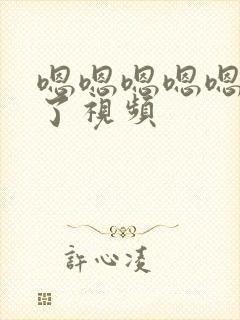 嗯嗯嗯嗯嗯
了視頻
許心凌